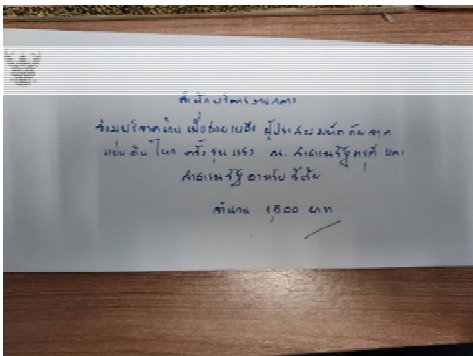 สำนักบริหารงานกลาง
ร่วมบริจาคเงิน เพื่อช่วยเหลือ ผู้ประสบภัยพิบัติจาก
แผ่นดินไหว ครั้งรุนแรง ณ สาธารณรัฐตุรกี และ
สาธารณรัฐอาหรับซีเรีย
จำนวน 1,500 บาท